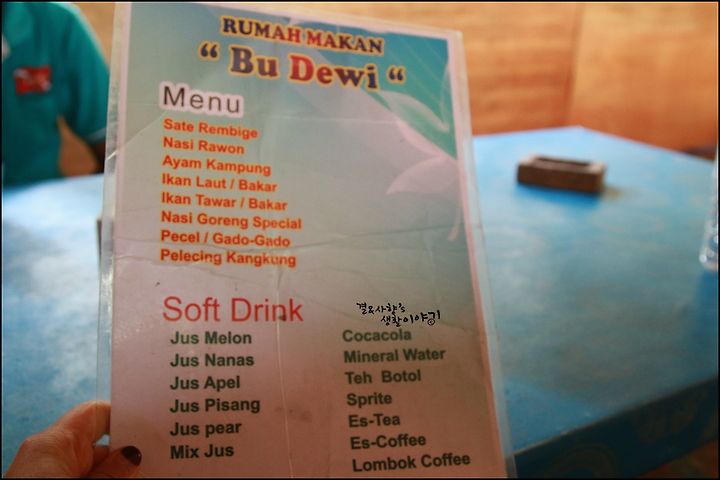 RUMAH MAKAN
“ Bu Dewi “
Menu
Sate Rembige
Nasi Rawon
Ayam Kampung
Ikan Laut / Bakar
Ikan Tawar / Bakar
Nasi Goreng Special
Pecel / Gado-Gado
Pelecing Kangkung
Soft Drink
Jus Melon
Jus Nanas
Jus Apel
Jus Pisang
Jus pear
Mix Jus
Cocacola
Mineral Water
Teh Botol
Sprite
Es-Tea
Es-Coffee
Lombok Coffee
생활이야기